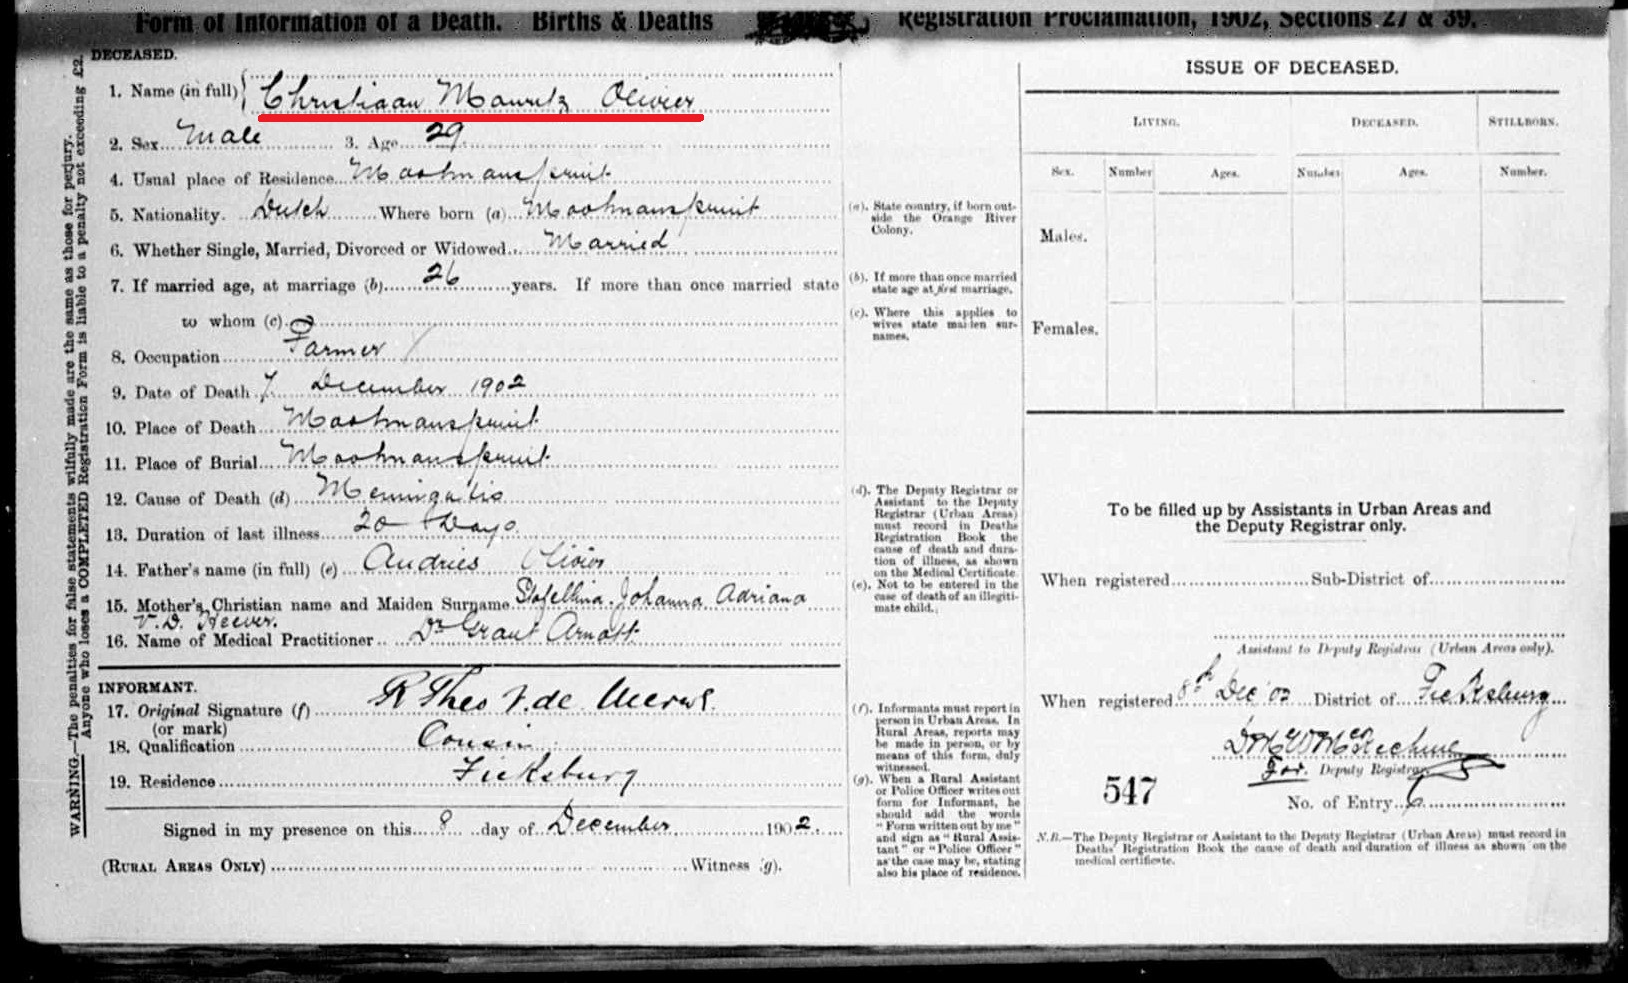 Form of Information of a Death. Births & Deaths Registration Proclamation, 1902, Sections 27 & 39.
WARNING.—The penalties for false statements wilfully made are the same as those for perjury.
Anyone who loses a COMPLETED Registration Form is liable to a penalty not exceeding £2.
DECEASED.
1. Name (in full) Christiaan Mauritz Olivier
2. Sex Male 3. Age 29
4. Usual place of Residence
5. Nationality. Dutch Where born (a)
6. Whether Single, Married, Divorced or Widowed Married
7. If married age, at marriage (b) 26 years. If more than once married state
to whom (c)
8. Occupation Farmer
9. Date of Death 7 December 1902
10. Place of Death
11. Place of Burial
12. Cause of Death (d) Meningitis
13. Duration of last illness 20 Days
14. Father's name (in full) (e) Andries Olivier
15. Mother's Christian name and Maiden Surname Johanna Adriana
V. D. Heever.
16. Name of Medical Practitioner Dr Grant Arnott
INFORMANT.
17. Original Signature (f) R Theo V. de Merwe
(or mark)
18. Qualification Cousin
19. Residence Ficksburg
Signed in my presence on this 8 day of December 1902.
(RURAL AREAS ONLY) Witness (g).
(a). State country, if born out-
side the Orange River
Colony.
(b). If more than once married
state age at first marriage.
(c). Where this applies to
wives state maiden sur-
names.
(d). The Deputy Registrar or
Assistant to the Deputy
Registrar (Urban Areas)
must record in Deaths
Registration Book the
cause of death and dura-
tion of illness, as shown
on the Medical Certificate.
(e). Not to be entered in the
case of death of an illegiti-
mate child.
(f). Informants must report in
person in Urban Areas. In
Rural Areas, reports may
be made in person, or by
means of this form, duly
witnessed.
(g). When a Rural Assistant
or Police Officer writes out
form for Informant, he
should add the words
"Form written out by me"
and sign as "Rural Assis-
tant" or "Police Officer"
as the case may be, stating
also his place of residence.
ISSUE OF DECEASED.
LIVING. DECEASED. STILLBORN.
Sex. Number Ages. Number Ages. Number.
Males.
Females.
To be filled up by Assistants in Urban Areas and
the Deputy Registrar only.
When registered Sub-District of
Assistant to Deputy Registrar (Urban Areas only).
When registered 8th Dec '02 District of Ficksburg
For. Deputy Registrar
547
No. of Entry 6
N.B.—The Deputy Registrar or Assistant to the Deputy Registrar (Urban Areas) must record in
Deaths' Registration Book the cause of death and duration of illness as shown on the
medical certificate.